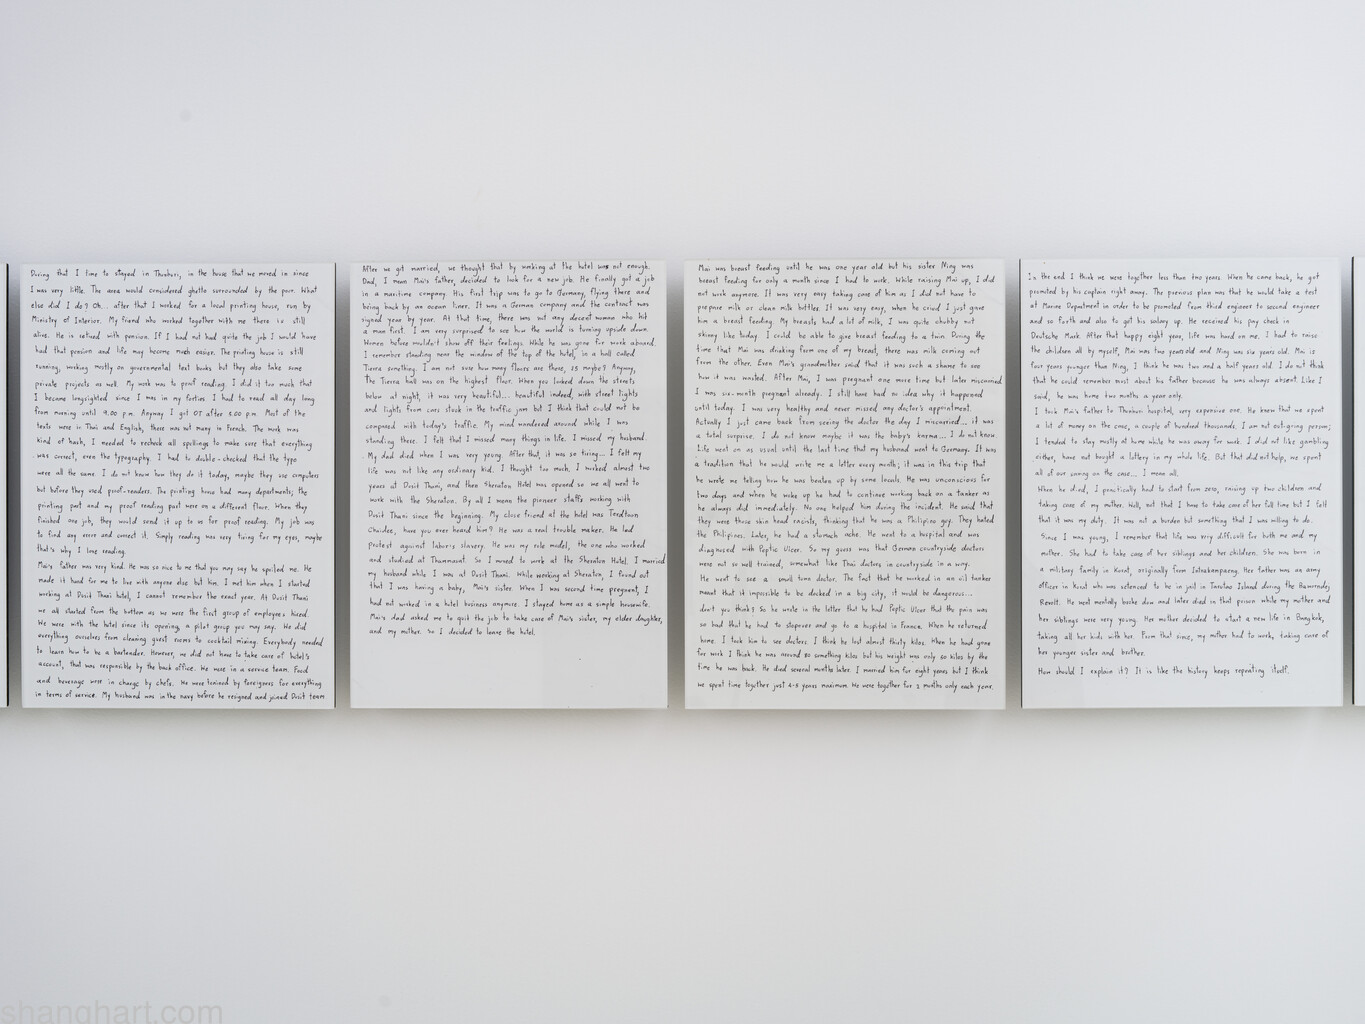 During that I time to stayed in Thonburi, in the house that we moved in since
I was very little. The area would considered ghetto surrounded by the poor. What
else did I do? Oh... after that I worked for a local printing house, run by
Ministry of Interior. My friend who worked together with me there is still
alive. He is retired with pension. If I had not had quite the job I would have
had that pension and life may become much easier. The printing house is still
running, working mostly on governmental text books but they also take some
private projects as well. My work was to proof reading. I did it too much that
I became longsighted since I was in my forties. I had to read all day long
from morning until 9.00 p.m. Anyway I got OT after 5.00 p.m. Most of the
texts were in Thai and English, there was not many in French. The work was
kind of hash, I needed to recheck all spellings to make sure that everything
was correct, even the typography. I had to double-checked that the typo
were all the same. I do not know how they do it today, maybe they use computers
but before they used proof-readers. The printing house had many departments; the
printing part and my proof reading part were on a different floor. When they
finished one job, they would send it up to us for proof reading. My job was
to find any error and correct it. Simply reading was very tiring for my eyes, maybe
that's why I love reading.
Mai's father was very kind. He was so nice to me that you may say he spoiled me. He
made it hard for me to live with anyone else but him. I met him when I started
working at Dusit Thani hotel, I cannot remember the exact year. At Dusit Thani
we all started from the bottom as we were the first group of employees hired.
We were with the hotel since its opening, a pilot group you may say. We did
everything ourselves from cleaning guest rooms to cocktail mixing. Everybody needed
to learn how to be a bartender. However, we did not have to take care of hotel's
account, that was responsible by the back office. We were in a service team. Food
and beverage were in charge by chefs. We were trained by foreigners for everything
in terms of service. My husband was in the navy before he resigned and joined Dusit team
After we got married, we thought that by working at the hotel was not enough.
Dad, I mean Mai's father, decided to look for a new job. He finally got a job
in a maritime company. His first trip was to go to Germany, flying there and
being back by an ocean liner. It was a German company and the contract was
signed year by year. At that time, there was not any decent woman who hit
a man first. I am very surprised to see how the world is turning upside down.
Women before wouldn't show off their feelings. While he was gone for work abroad.
I remember standing near the window of the top of the hotel, in a hall called
Tierra something. I am not sure how many floors are there, 23 maybe? Anyway,
The Tierra hall was on the highest floor. When you looked down the streets
below at night, it was very beautiful... beautiful indeed, with street lights
and lights from cars stuck in the traffic jam but I think that could not be
compared with today's traffic. My mind wandered around while I was
standing there. I felt that I missed many things in life. I missed my husband.
My dad died when I was very young. After that, it was so tiring... I felt my
life was not like any ordinary kid. I thought too much. I worked almost two
years at Dusit Thani, and then Sheraton Hotel was opened so we all went to
work with the Sheraton. By all I mean the pioneer staffs working with
Dusit Thani since the beginning. My close friend at the hotel was Terdtoon
Chaidee, have you ever heard him? He was a real trouble maker. He led
protest against laboris slavery. He was my role model, the one who worked
and studied at Thammasat. So I moved to work at the Sheraton Hotel. I married
my husband while I was at Dusit Thani. While working at Sheraton, I found out
that I was having a baby, Mai's sister. When I was second time pregnant, I
had not worked in a hotel business anymore. I stayed home as a simple housewife.
Mai's dad asked me to quit the job to take care of Mai's sister, my elder daughter,
and my mother. So I decided to leave the hotel.
Mai was breast feeding until he was one year old but his sister Ning was
breast feeding for only a month since I had to work. While raising Mai up, I did
not work anymore. It was very easy taking care of him as I did not have to
prepare milk or clean milk bottles. It was very easy, when he cried I just gave
him a breast feeding. My breasts had a lot of milk, I was quite chubby not
skinny like today. I could be able to give breast feeding to a twin. During the
time that Mai was drinking from one of my breast, there was milk coming out
from the other. Even Mai's grandmother said that it was such a shame to see
how it was wasted. After Mai, I was pregnant one more time but later miscarried
I was six-month pregnant already. I still have had no idea why it happened
until today. I was very healthy and never missed any doctor's appointment.
Actually I just came back from seeing the doctor the day I miscarried... it was
a total surprise. I do not know maybe it was the baby's karma... I do not know.
Life went on as usual until the last time that my husband went to Germany. It was
a tradition that he would write me a letter every month; it was in this trip that
he wrote me telling how he was beaten up by some locals. He was unconscious for
two days and when he woke up he had to continue working back on a tanker as
he always did immediately. No one helped him during the incident. He said that
they were those skin head racists, thinking that he was a Philipino guy. They hated
the Philipines. Later, he had a stomach ache. He went to a hospital and was
diagnosed with Peptic Ulcer. So my guess was that German countryside doctors
were not so well trained, somewhat like Thai doctors in countryside in a way.
He went to see a small town doctor. The fact that he worked in an oil tanker
meant that it impossible to be docked in a big city, it would be dangerous...
don't you think? So he wrote in the letter that he had Peptic Ulcer that the pain was
so bad that he had to stopover and go to a hospital in France. When he returned
home. I took him to see doctors. I think he lost almost thirty kilos. When he had gone
for work I think he was around 80 something kilos but his weight was only 50 kilos by the
time he was back. He died several months later. I married him for eight years but I think
we spent time together just 4-5 years maximum. We were together for 2 months only each year.
In the end I think we were together less than two years. When he came back, he got
promoted by his captain right away. The previous plan was that he would take a test
at Marine Department in order to be promoted from third engineer to second engineer
and so forth and also to get his salary up. He received his pay check in
Deutsche Mark. After that happy eight year, life was hard on me. I had to raise
the children all by myself, Mai was two years old and Ning was six years old. Mai is
four years younger than Ning, I think he was two and a half years old. I do not think
that he could remember most about his father because he was always absent. Like I
said, he was home two months a year only.
I took Mai's father to Thonburi hospital, very expensive one. He knew that we spent
a lot of money on the case, a couple of hundred thousands. I am not out-going person;
I tended to stay mostly at home while he was away for work. I did not like gambling
either, have not bought a lottery in my whole life. But that did not help, we spent
all of our saving on the case... I mean all.
When he died, I practically had to start from zero, raising up two children and
taking care of my mother. Well, not that I have to take care of her full time but I felt
that it was my duty. It was not a burden but something that I was willing to do.
Since I was young, I remember that life was very difficult for both me and my
mother. She had to take care of her siblings and her children. She was born in
a military family in Korat, originally from Intrakampaeng. Her father was an army
officer in Korat who was setenced to be in jail in Tarutao Island during the Boworndej
Revolt. He went mentally broke dow and later died in that prison while my mother and
her siblings were very young. Her mother decided to start a new life in Bangkok,
taking all her kids with her. From that since, my mother had to work, taking care of
her younger sister and brother.
How should I explain it? It is like the history keeps repeating itself.
shanghart.com